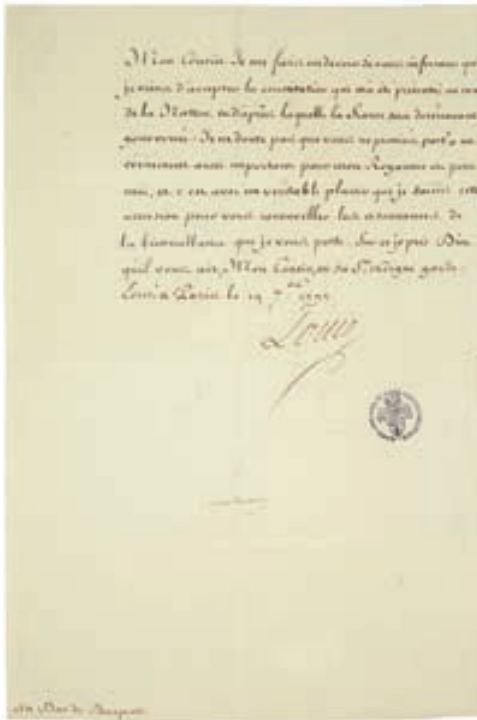 Mon Cousin. Je me fais un devoir de vous informer que
je viens d'accepter la constitution qui m'a été présentée au nom
de la Nation, et d'après laquelle la France sera dorénavant
gouvernée. Je ne doute pas que vous ne preniez part à un
évènement aussi important pour mon Royaume et pour
moi, et c'est avec un véritable plaisir que je saisis cette
occasion pour vous renouveller les assurances de
la bienveillance que je vous porte. Sur ce je prie Dieu
qu'il vous ait, Mon Cousin, en sa Ste et digne garde.
Ecrit à Paris le 19 7bre 1791
Louis